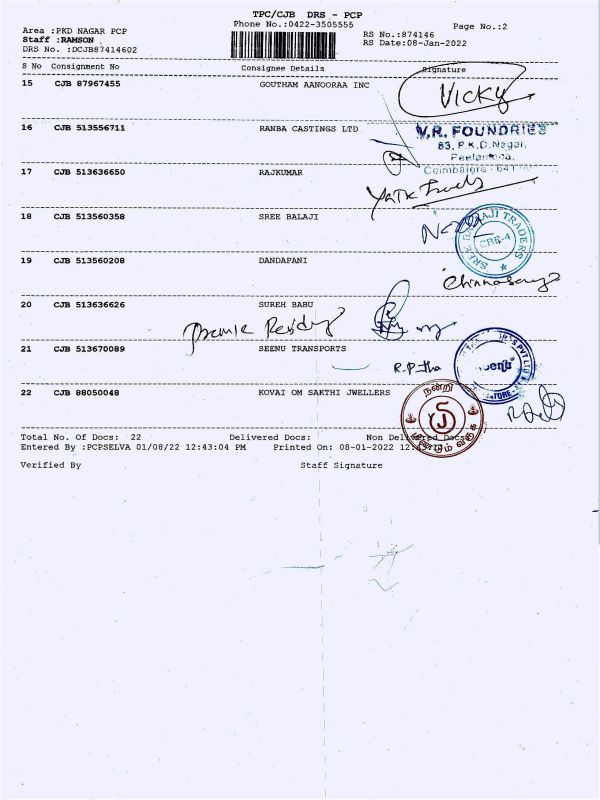 TPC/CJB DRS - PCP
Phone No.:0422-3505555
Page No.:2
Area :PKD NAGAR PCP
RS No.:874146
Staff :RAMSON
RS Date:08-Jan-2022
DRS No. :DCJB87414602
S No Consignment No Consignee Details Signature
15 CJB 87967455 GOUTHAM AANOORAA INC
VICKY
16 CJB 513556711 RANBA CASTINGS LTD
V.R. FOUNDRIES
83, P.K.D.Nagar,
Peelamedu,
Coimbatore - 641
17 CJB 513636650 RAJKUMAR
18 CJB 513560358 SREE BALAJI
SREE BALAJI TRADERS
CBE-4
19 CJB 513560208 DANDAPANI
Chinnasamy
20 CJB 513636626 SUREH BABU
Reddy
21 CJB 513670089 SEENU TRANSPORTS
22 CJB 88050048 KOVAI OM SAKTHI JWELLERS
நன்றி
மீண்டும் வருக
Total No. Of Docs: 22 Delivered Docs: Non Delivered Docs:
Entered By :PCPSELVA 01/08/22 12:43:04 PM Printed On: 08-01-2022 12:
Verified By Staff Signature